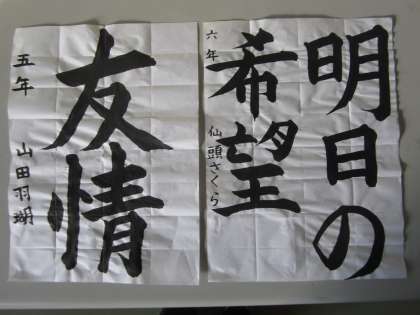 明日の
希望
六年 仙頭さくら
友情
五年 山田羽瑚